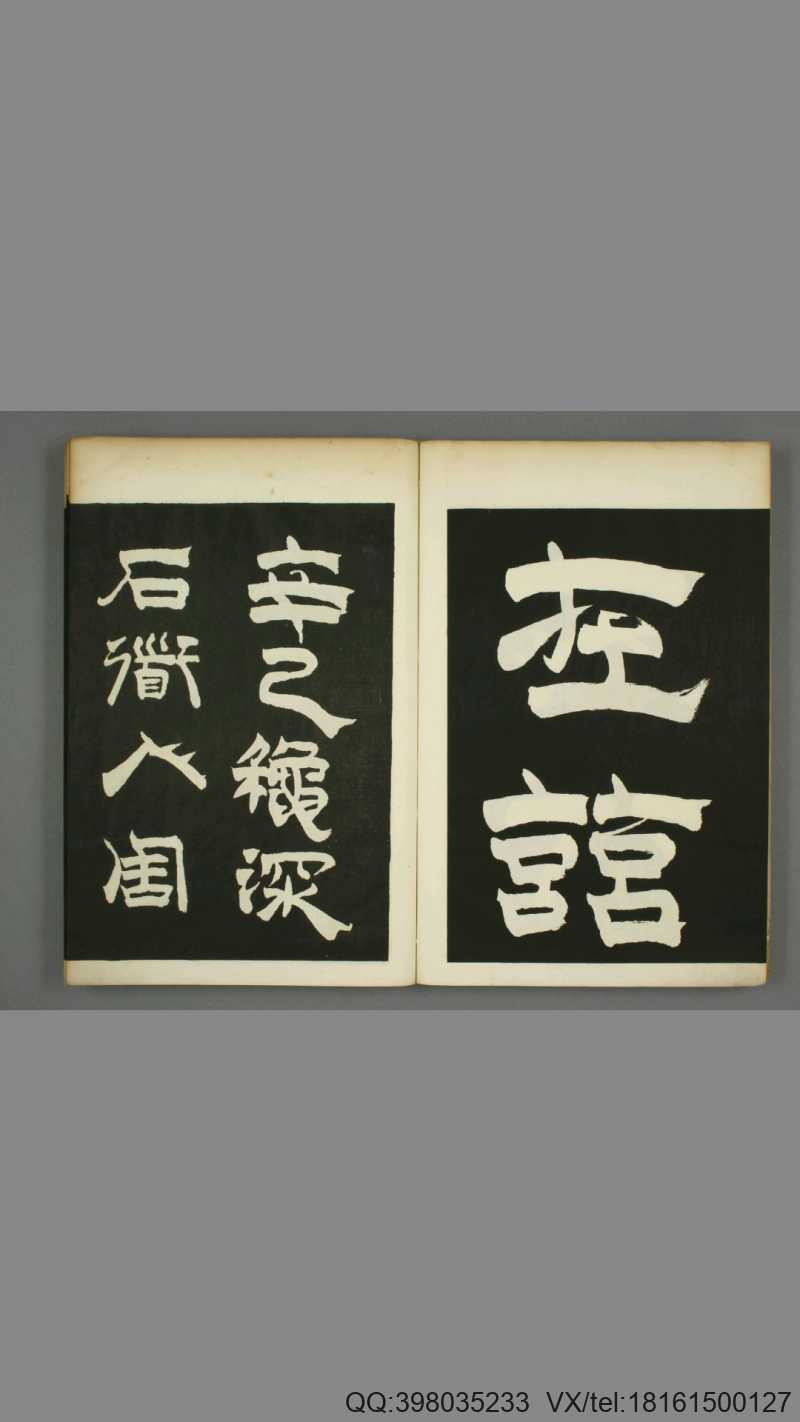 在誩
辛巳穐深
石衜人周
QQ:398035233 VX/tel:18161500127